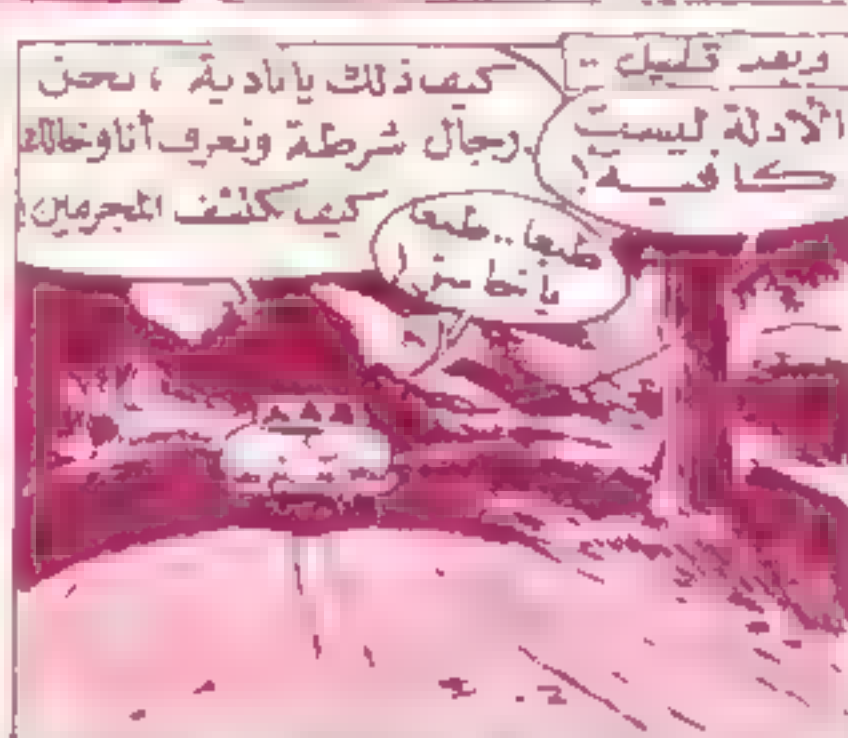 وبعد قليل ..
الأدلة ليست
كافية !
كيف ذلك يا نادية ، نحن
رجال شرطة ونعرف أنا وخالك
كيف نكشف المجرمين !
طبعا .. طبعا
يا